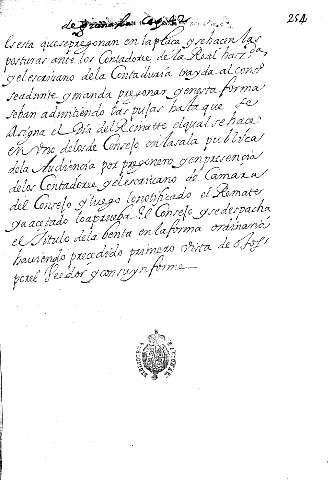 254
les esta que se pregonan en la plaça y se hacen las
posturas ante los Contadores de la Real haz.da
y el escrivano de la Contaduria trayda al cons.o
se admite y manda pregonar y en esta forma
se ban admitiendo las pujas hasta que se
asigna el Dia del Rematte el qual se hace
en uno de los de Consejo en la sala publica
de la Audiencia por pregonero y en presencia
de los Contadores y el escrivano de Camara
del Consejo y luego se notificado el Remate
y açetado lo aprueba el Consejo y se despacha
el Titulo de la benta en la forma ordinaria
haviendo precedido primero vista de
por el y con su ynforme